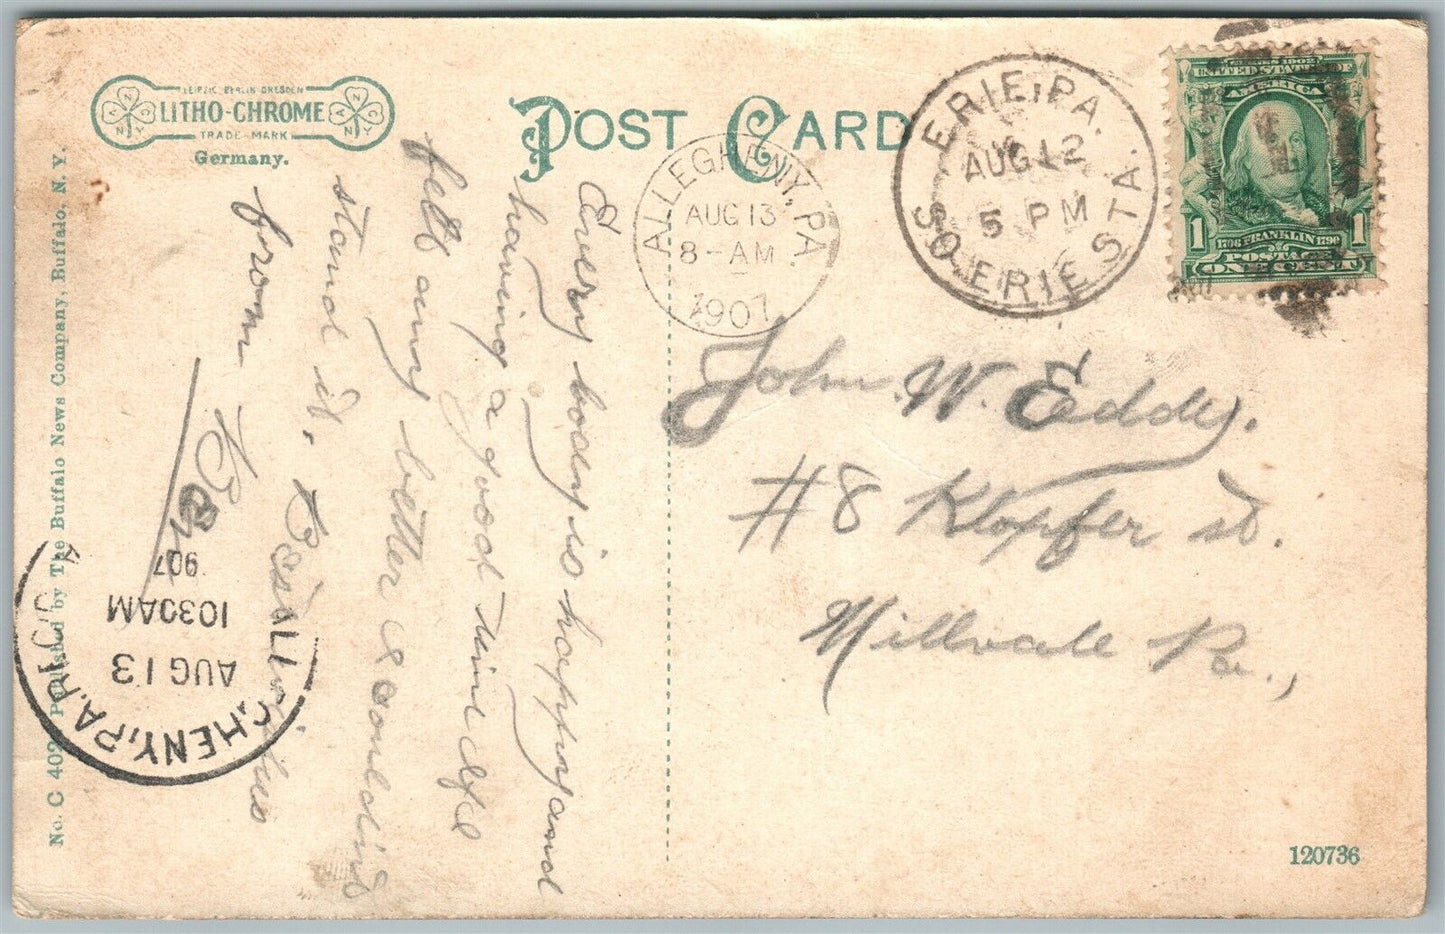 LEIPZIG BERLIN DRESDEN
LITHO-CHROME
TRADE-MARK
Germany.
POST CARD
ERIE, PA.
AUG 12
5 PM
SO. ERIE STA.
ALLEGHENY, PA.
AUG 13
8-AM
1907
SERIES 1902
UNITED STATES OF
AMERICA
1 1
1706 FRANKLIN 1790
POSTAGE
ONE CENT
John W. Eddy.
#8 Klopfer st.
Millvale Pa.,
Every body is happy and
having a good time if I
felt any better I couldn't
stand it.
from
CHENY, PA.
AUG 13
1030AM
907
No. C 402 Published by The Buffalo News Company, Buffalo, N. Y.
120736